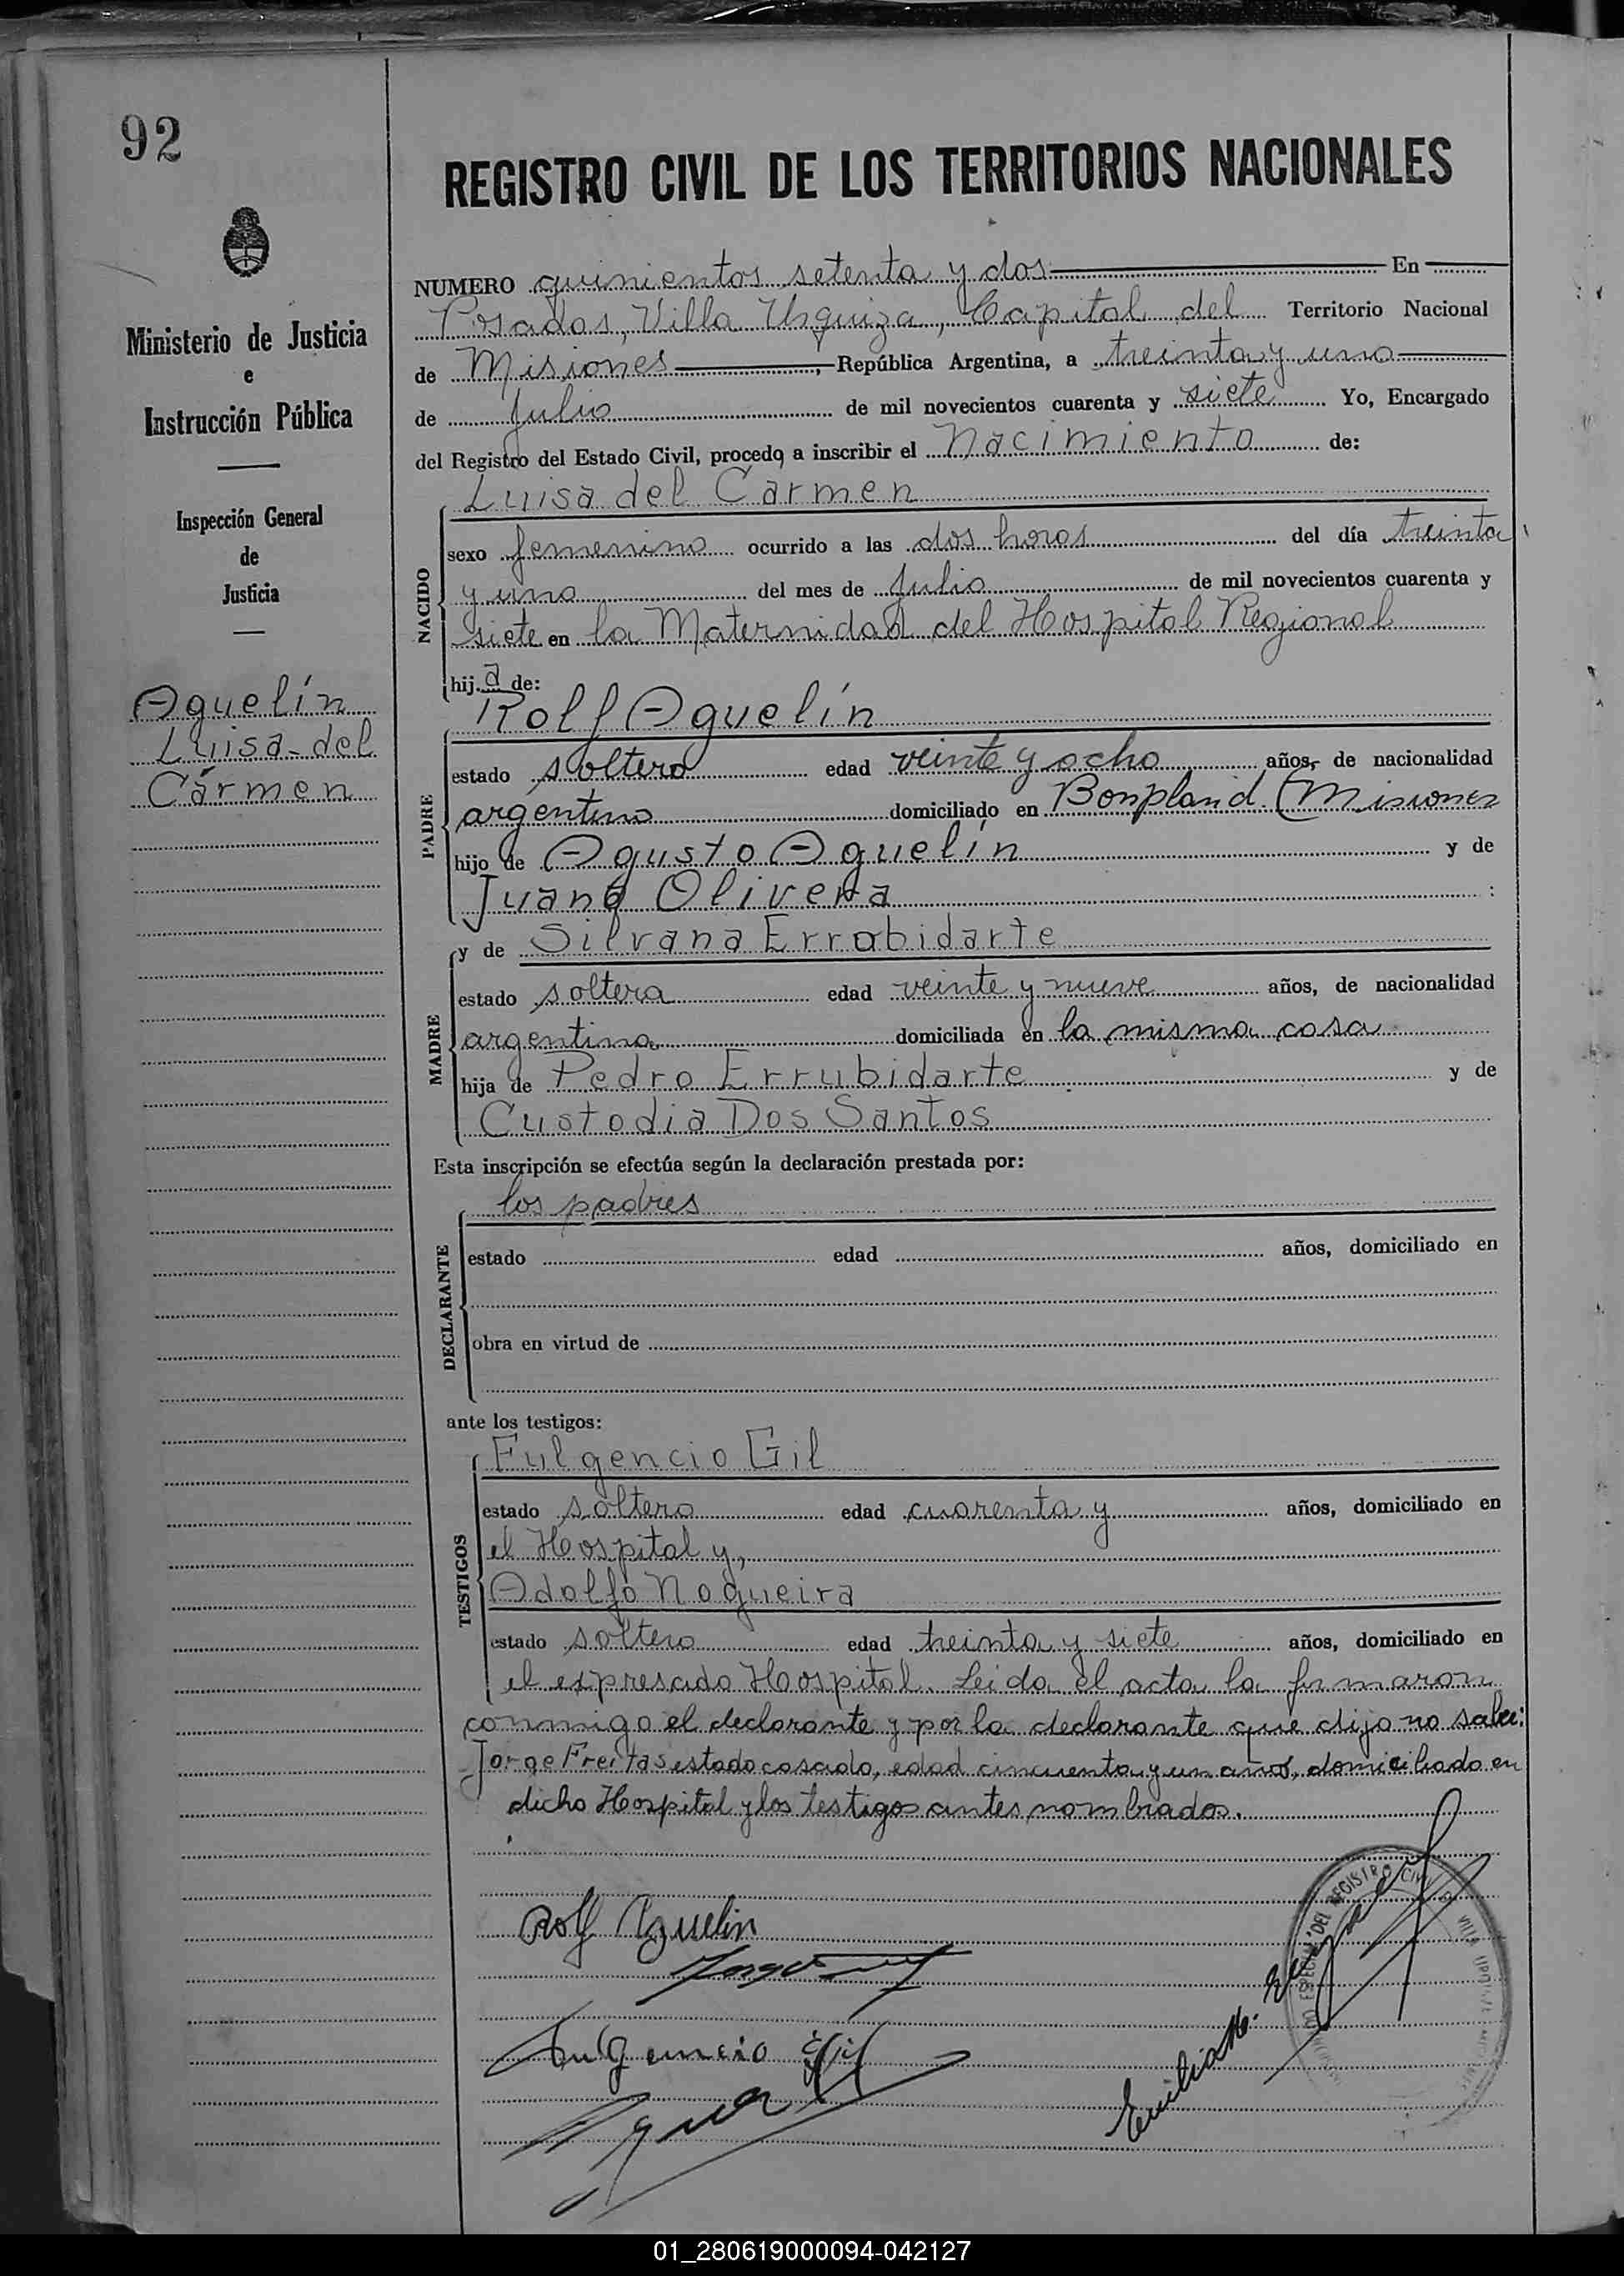 92
REGISTRO CIVIL DE LOS TERRITORIOS NACIONALES
Ministerio de Justicia
e
Instrucción Pública
Inspección General
de
Justicia
Aguelín
Luisa del
Cármen
NUMERO quinientos setenta y dos En
Posadas, Villa Urquiza, Capital del Territorio Nacional
de Misiones, República Argentina, a treinta y uno
de Julio de mil novecientos cuarenta y siete Yo, Encargado
del Registro del Estado Civil, procedo a inscribir el Nacimiento de:
NACIDO
Luisa del Carmen
sexo femenino ocurrido a las dos horas del día treinta
y uno del mes de Julio de mil novecientos cuarenta y
siete en la Maternidad del Hospital Regional
hija de:
PADRE
Rolf Aguelín
estado soltero edad veinte y ocho años, de nacionalidad
argentino domiciliado en Bonpland (Misiones
hijo de Agusto Aguelín y de
Juana Olivera :
MADRE
y de Silvana Errabidarte
estado soltera edad veinte y nueve años, de nacionalidad
argentina domiciliada en la misma casa
hija de Pedro Errubidarte y de
Custodia Dos Santos
Esta inscripción se efectúa según la declaración prestada por:
DECLARANTE
los padres
estado edad años, domiciliado en
obra en virtud de
ante los testigos:
TESTIGOS
Fulgencio Gil
estado soltero edad cuarenta y años, domiciliado en
el Hospital y,
Adolfo Nogueira
estado soltero edad treinta y siete años, domiciliado en
el expresado Hospital. Leida el acta la firmaron
conmigo el declarante y por la declarante que dijo no saber:
Jorge Freitas estado casado, edad cincuenta y un años, domiciliado en
dicho Hospital y los testigos antes nombrados.
Rolf Aguelin
Fulgencio Gil
Emilia
DEL REGISTRO CIVIL
01_280619000094-042127